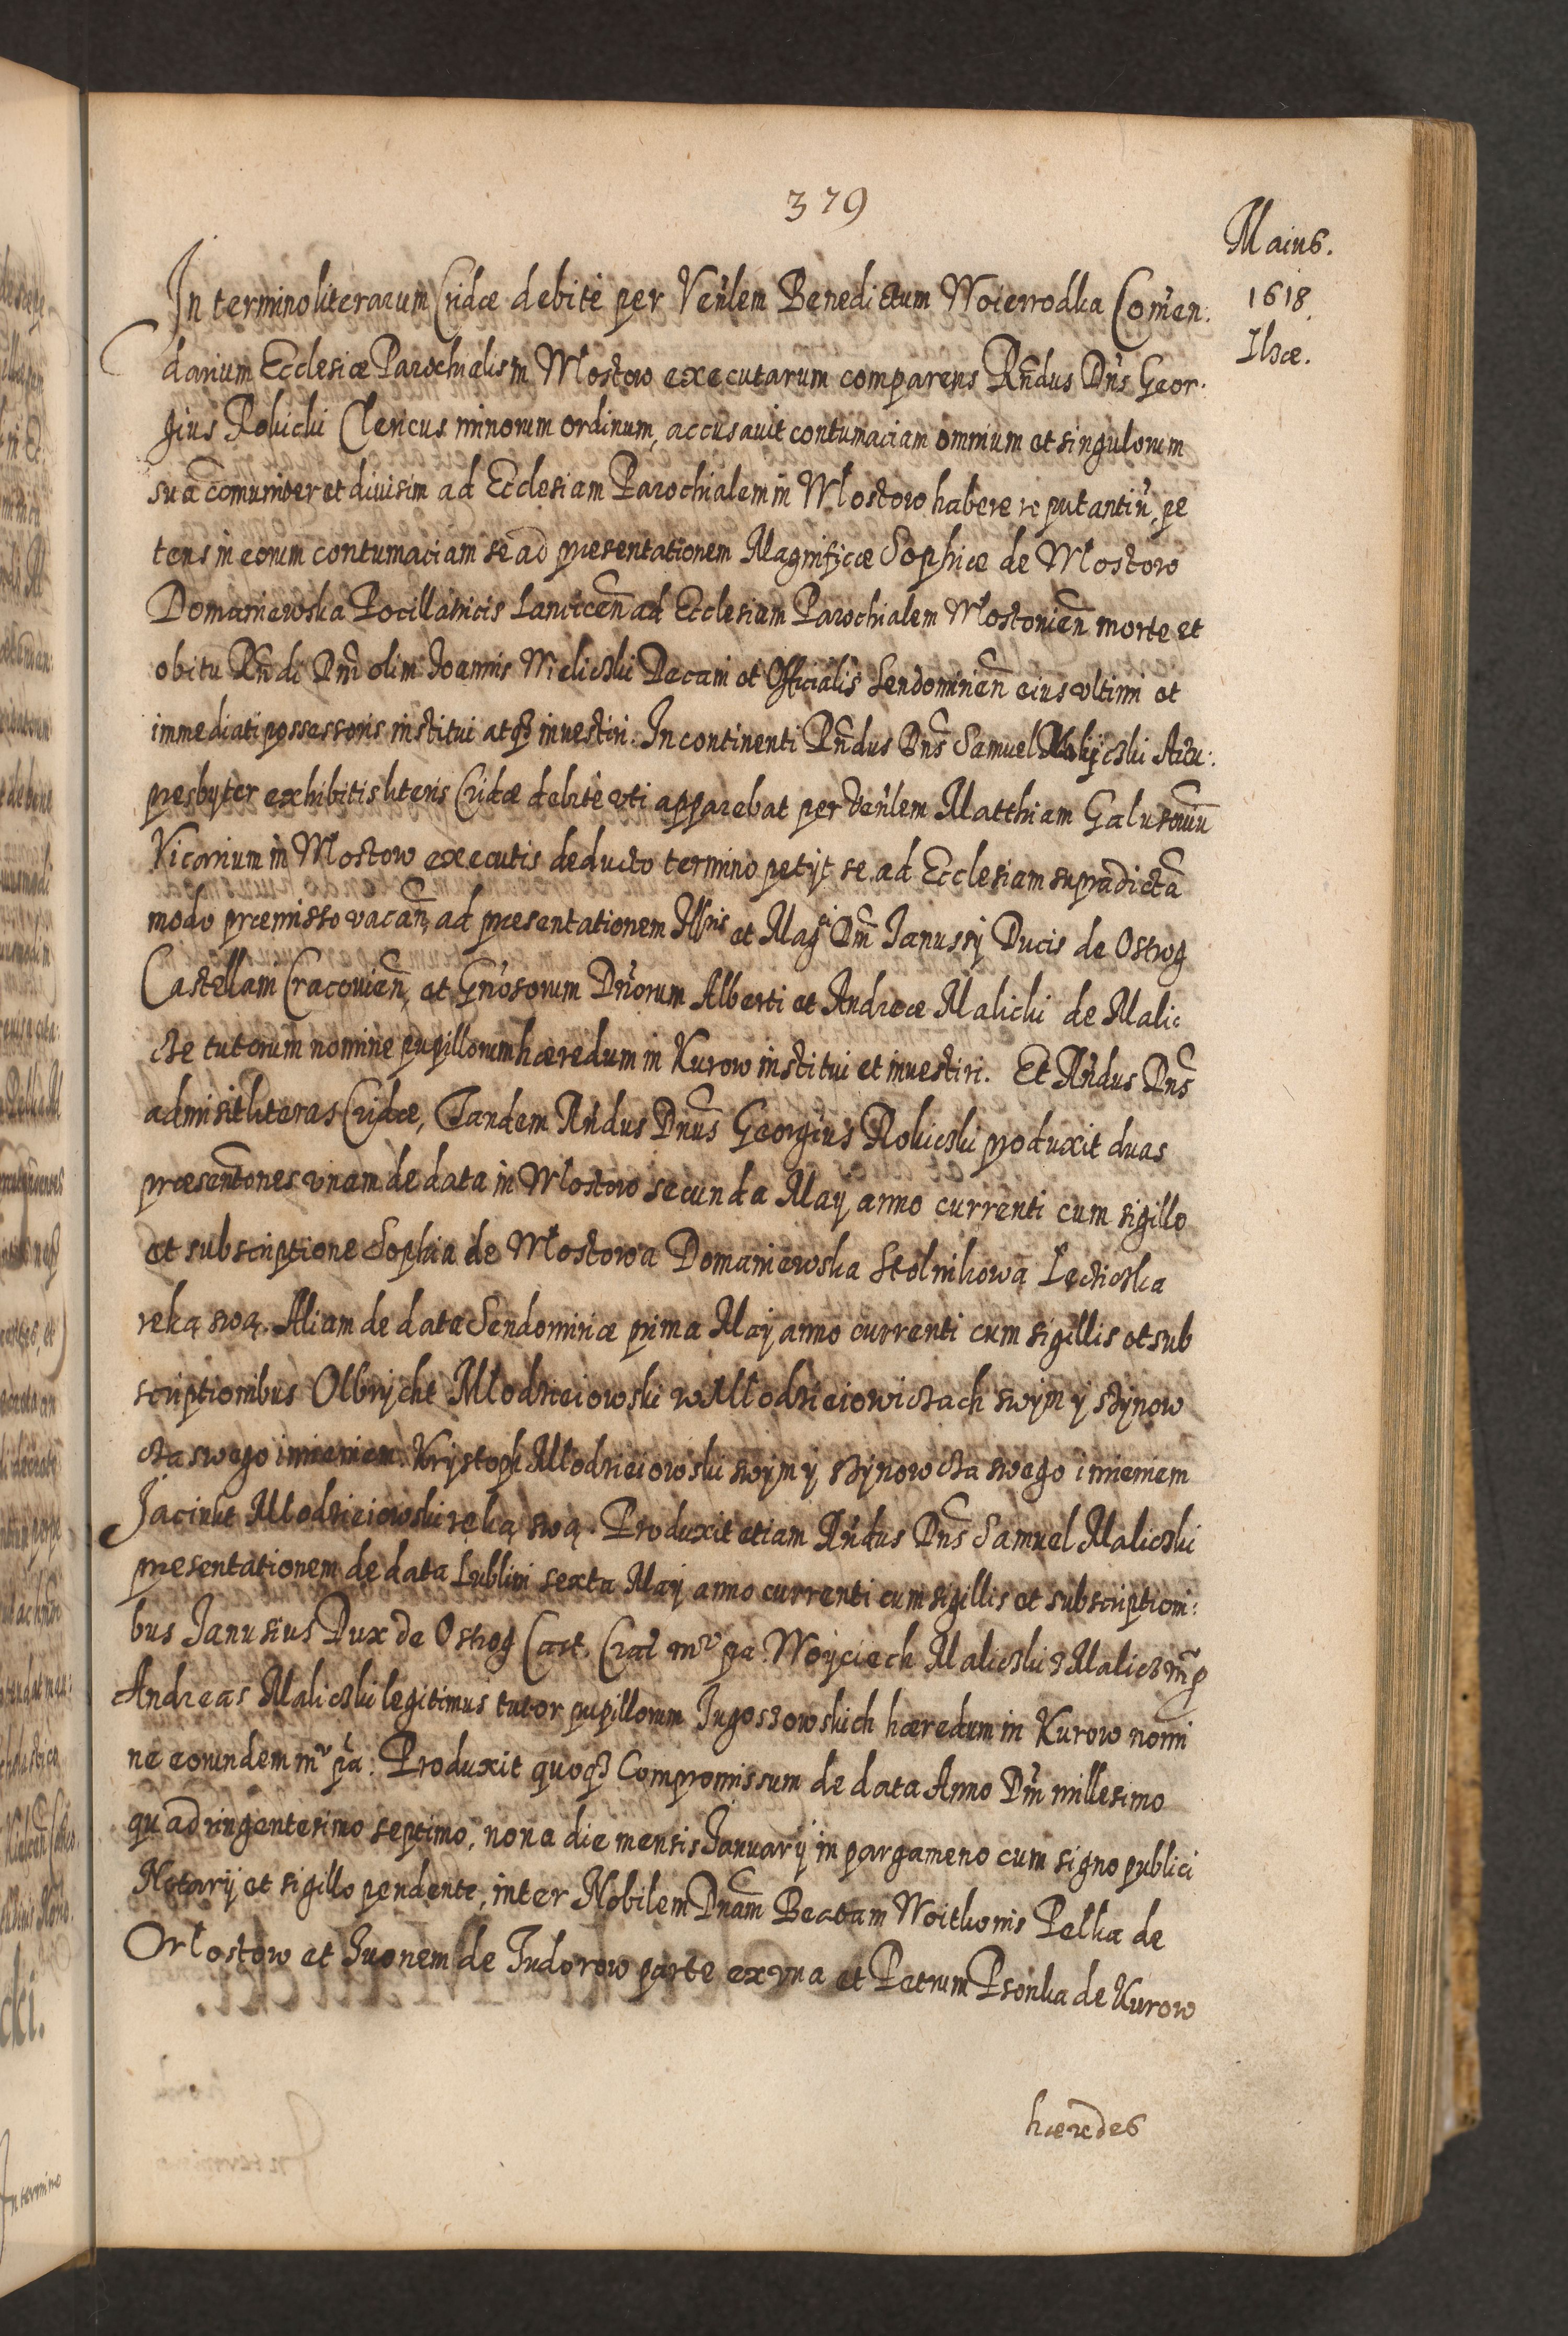 379
Maius.
1618.
Ilzæ.
In termino literarum Cridæ debite per Veñlem Benedictum Woierrodka Comen:
darium Ecclesiæ Parochialis in Włostow executarum comparens Rñdus Dñs Geor:
gius Rokicki Clericus minorum ordinum, accusauit contumaciam omnium et singulorum
sua comuniter et diuisim ad Ecclesiam Parochialem in Włostow habere reputantiũ, pe
tens in eorum contumaciam se ad præsentationem Magnificæ Sophiæ de Włostow
Domaniewska Pocillatricis Lanciceñ ad Ecclesiam Parochialem Włostouieñ morte et
obitu Rñdi Dñi olim Joannis Wieliczki Decani et Officialis Sendomirieñ eius vltimi et
immediati possessoris institui atqȝ inuestiri. In continenti Rñdus Dñs Samuel Maliczki Archi:
presbyter exhibitis literis Cridæ debite vti apparebat per Veñlem Matthiam
Vicarium in Włostow executis deducto termino petijt se ad Ecclesiam supradictã
modo præmisso vacañ, ad præsentationem Illris et Magci Dñi Ianussij Ducis de Ostrog
Castellani Cracouieñ, et Gñosorum Dñorum Alberti et Andreæ Malicki de Malic
cze tutorum nomine pupillorum hæredum in Kurow institui et inuestiri. Et Rñdus Dñs
admisit literas Cridæ, Tandem Rñdus Dnus Georgius Rokiczki produxit duas
præsentõnes vnam de data in Włostow secunda Maij anno currenti cum sigillo
et subscriptione Sophia de Włostowa Domaniewska Stolnikowa Łęcticzka
ręką swą. Aliam de data Sendomiriæ prima Maij anno currenti cum sigillis et sub
scriptionibus Olbrycht Młodzieiowski w Młodzieiowiczach swym y szynow
cza swego imieniem. Krystoph Młodzieiowski swym y szynowcza swego imieniem
Jacinkt Młodzieiowski ręką swą. Produxit etiam Rñdus Dñs Samuel Maliczki
præsentationem de data Lublini sexta Maij anno currenti cum sigillis et subscriptioni:
bus Janusius Dux de Ostrog Cast. Crac. mr pa. Woyciech Maliczki z Malicz mp
Andreas Maliczki legitimus tutor pupillorum Jugoszowskich hæredum in Kurow nomi
ne eorundem mr pa. Produxit quoqȝ Compromissum de data Anno Dñi millesimo
quadringentesimo septimo, nona die mensis Januarij in pargameno cum signo publici
Notarij et sigillo pendente, inter Nobilem Dnam Beatam Woitkonis Pelka de
Włostow et Iuonem de Tudorow parte ex vna et Petrum Psonka de Kurow
hæredes